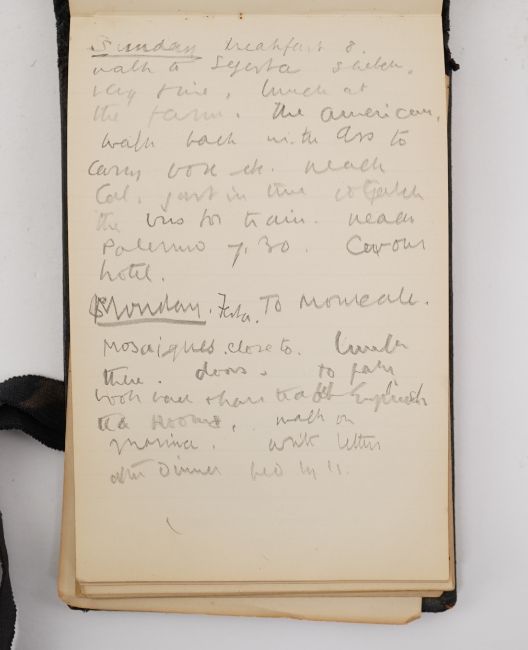 Sunday breakfast 8.
walk to Segesta sketch.
very fine, lunch at
the farm. The american.
Walk back with Ass to
carry box etc. reach
Cal. just in time to catch
the bus for train. reach
Palermo 7.30. Cavour
hotel.
Monday. Festa. To Monreale.
Mosaiques close to. lunch
there. doors. to
book and have tea at English
tea Rooms, walk on
marina. write letters
after Dinner bed by 11.